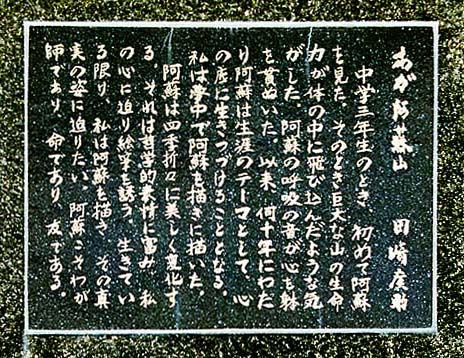 わが阿蘇山 田崎廣助
中学三年生のとき、初めて阿蘇
を見た。そのとき巨大な山の生命
力が体の中に飛び込んだような気
がした。阿蘇の呼吸の音が心も躰
を貫ぬいた。以来、何十年にわた
り阿蘇は生涯のテーマとして、心
の底に生きつづけることとなる。
私は夢中で阿蘇を描きに描いた。
阿蘇は四季折々に美しく変化す
る。それは哲学的表情に富み、私
の心に迫り絵筆を誘う。生きてい
る限り、私は阿蘇を描き、その真
実の姿に迫りたい。阿蘇こそわが
師であり、命であり、友である。